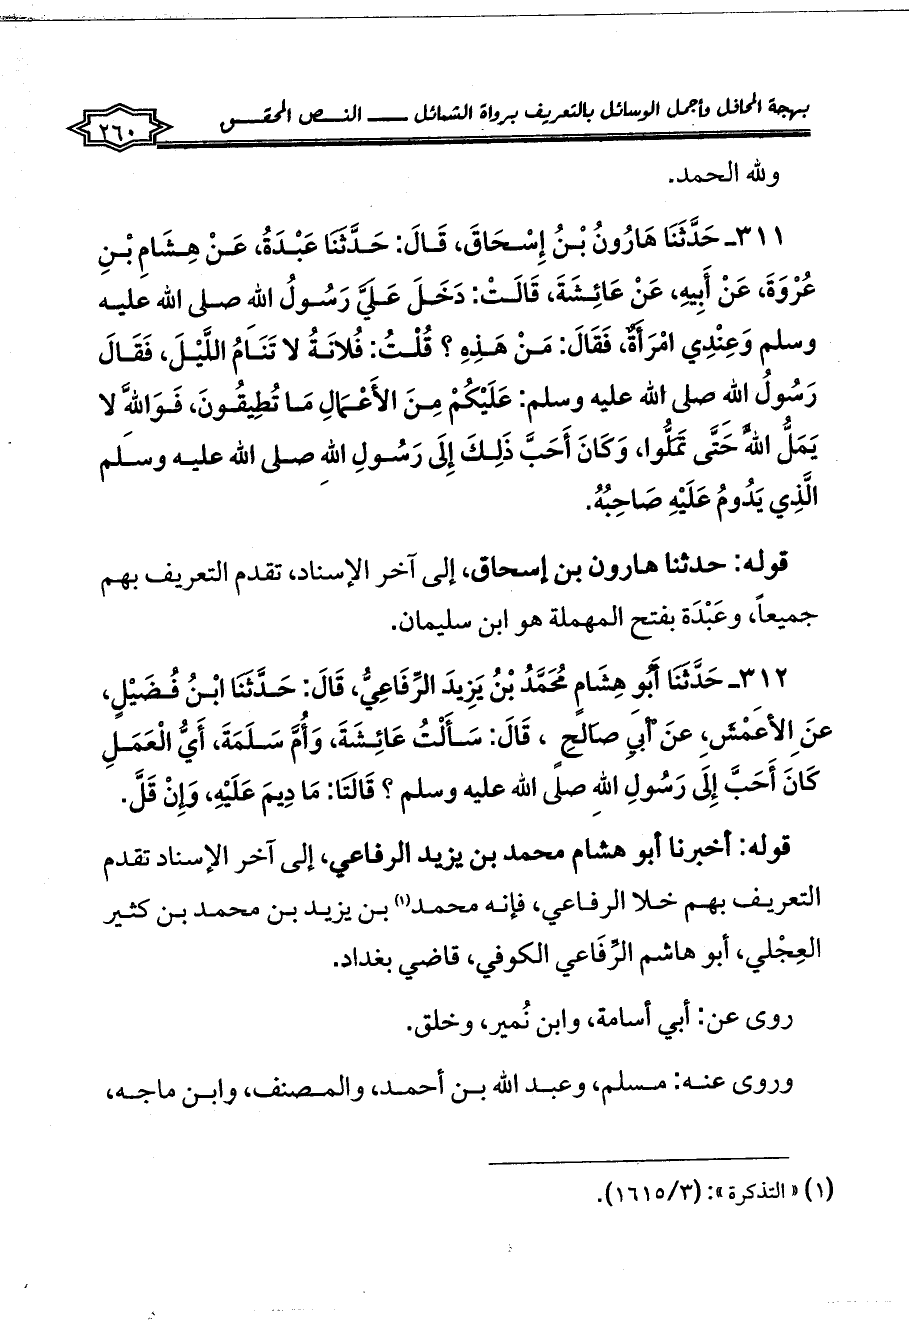 بهجة المحافل وأجمل الوسائل بالتعريف برواة الشمائل ـــ النــص المحقــق
٢٦٠
ولله الحمد.
٣١١ـ حَدَّثَنَا هَارُونُ بْنُ إِسْحَاقَ، قَالَ: حَدَّثَنَا عَبْدَةُ، عَنْ هِشَامِ بْنِ
عُرْوَةَ، عَنْ أَبِيهِ، عَنْ عَائِشَةَ، قَالَتْ: دَخَلَ عَلَيَّ رَسُولُ الله صلى الله عليه
وسلم وَعِنْدِي امْرَأَةٌ، فَقَالَ: مَنْ هَذِهِ ؟ قُلْتُ: فُلانَةُ لا تَنَامُ اللَّيْلَ، فَقَالَ
رَسُولُ الله صلى الله عليه وسلم: عَلَيْكُمْ مِنَ الأَعْمَالِ مَا تُطِيقُونَ، فَوَاللهِ لا
يَمَلُّ اللهُ حَتَّى تَمَلُّوا، وَكَانَ أَحَبَّ ذَلِكَ إِلَى رَسُولِ اللهِ صلى الله عليه وسلم
الَّذِي يَدُومُ عَلَيْهِ صَاحِبُهُ.
قوله: حدثنا هارون بن إسحاق، إلى آخر الإسناد، تقدم التعريف بهم
جميعاً، وعَبْدَة بفتح المهملة هو ابن سليمان.
٣١٢ـ حَدَّثَنَا أَبُو هِشَامٍ مُحَمَّدُ بْنُ يَزِيدَ الرِّفَاعِيُّ، قَالَ: حَدَّثَنَا ابْنُ فُضَيْلٍ،
عَنِ الأَعْمَشِ، عَنْ أَبِي صَالِحٍ ، قَالَ: سَأَلْتُ عَائِشَةَ، وَأُمَّ سَلَمَةَ، أَيُّ الْعَمَلِ
كَانَ أَحَبَّ إِلَى رَسُولِ اللهِ صلى الله عليه وسلم ؟ قَالَتَا: مَا دِيمَ عَلَيْهِ، وَإِنْ قَلَّ.
قوله: أخبرنا أبو هشام محمد بن يزيد الرفاعي، إلى آخر الإسناد تقدم
التعريف بهم خلا الرفاعي، فإنه محمد(١) بن يزيد بن محمد بن كثير
العِجْلي، أبو هاشم الرِّفَاعي الكوفي، قاضي بغداد.
روى عن: أبي أسامة، وابن نُمير، وخلق.
وروى عنه: مسلم، وعبد الله بن أحمد، والمصنف، وابن ماجه،
(١) «التذكرة»: (١٦١٥/٣).